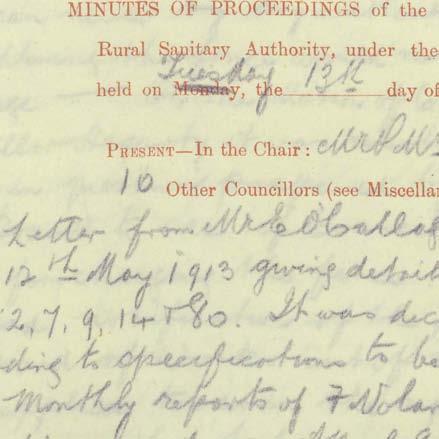 MINUTES OF PROCEEDINGS of the
Rural Sanitary Authority, under the
Tuesday 13th
held on Monday, the day of
PRESENT—In the Chair: Mr P Mc
10 Other Councillors (see Miscella
Letter from Mr E O'Callag
12th May 1913 giving detail
2, 7, 9, 14 & 80. It was dec
ding to specifications to be
Monthly reports of F Nolan